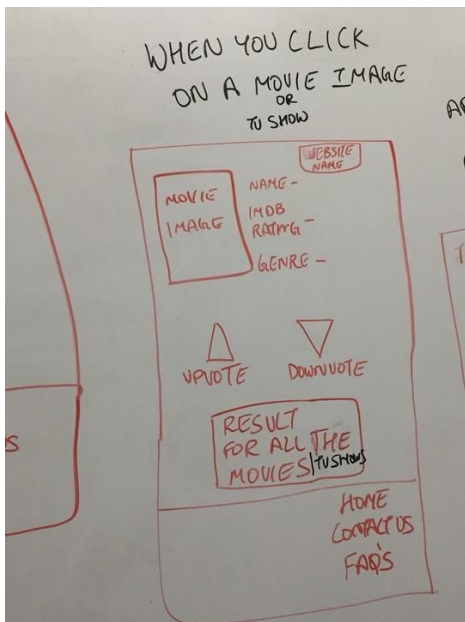 WHEN YOU CLICK
ON A MOVIE IMAGE
OR
TV SHOW
WEBSITE
NAME
MOVIE
IMAGE
NAME -
IMDB
RATING -
GENRE -
UPVOTE
DOWNVOTE
RESULT
FOR ALL THE
MOVIES/TV SHOWS
HOME
CONTACT US
FAQ'S
S